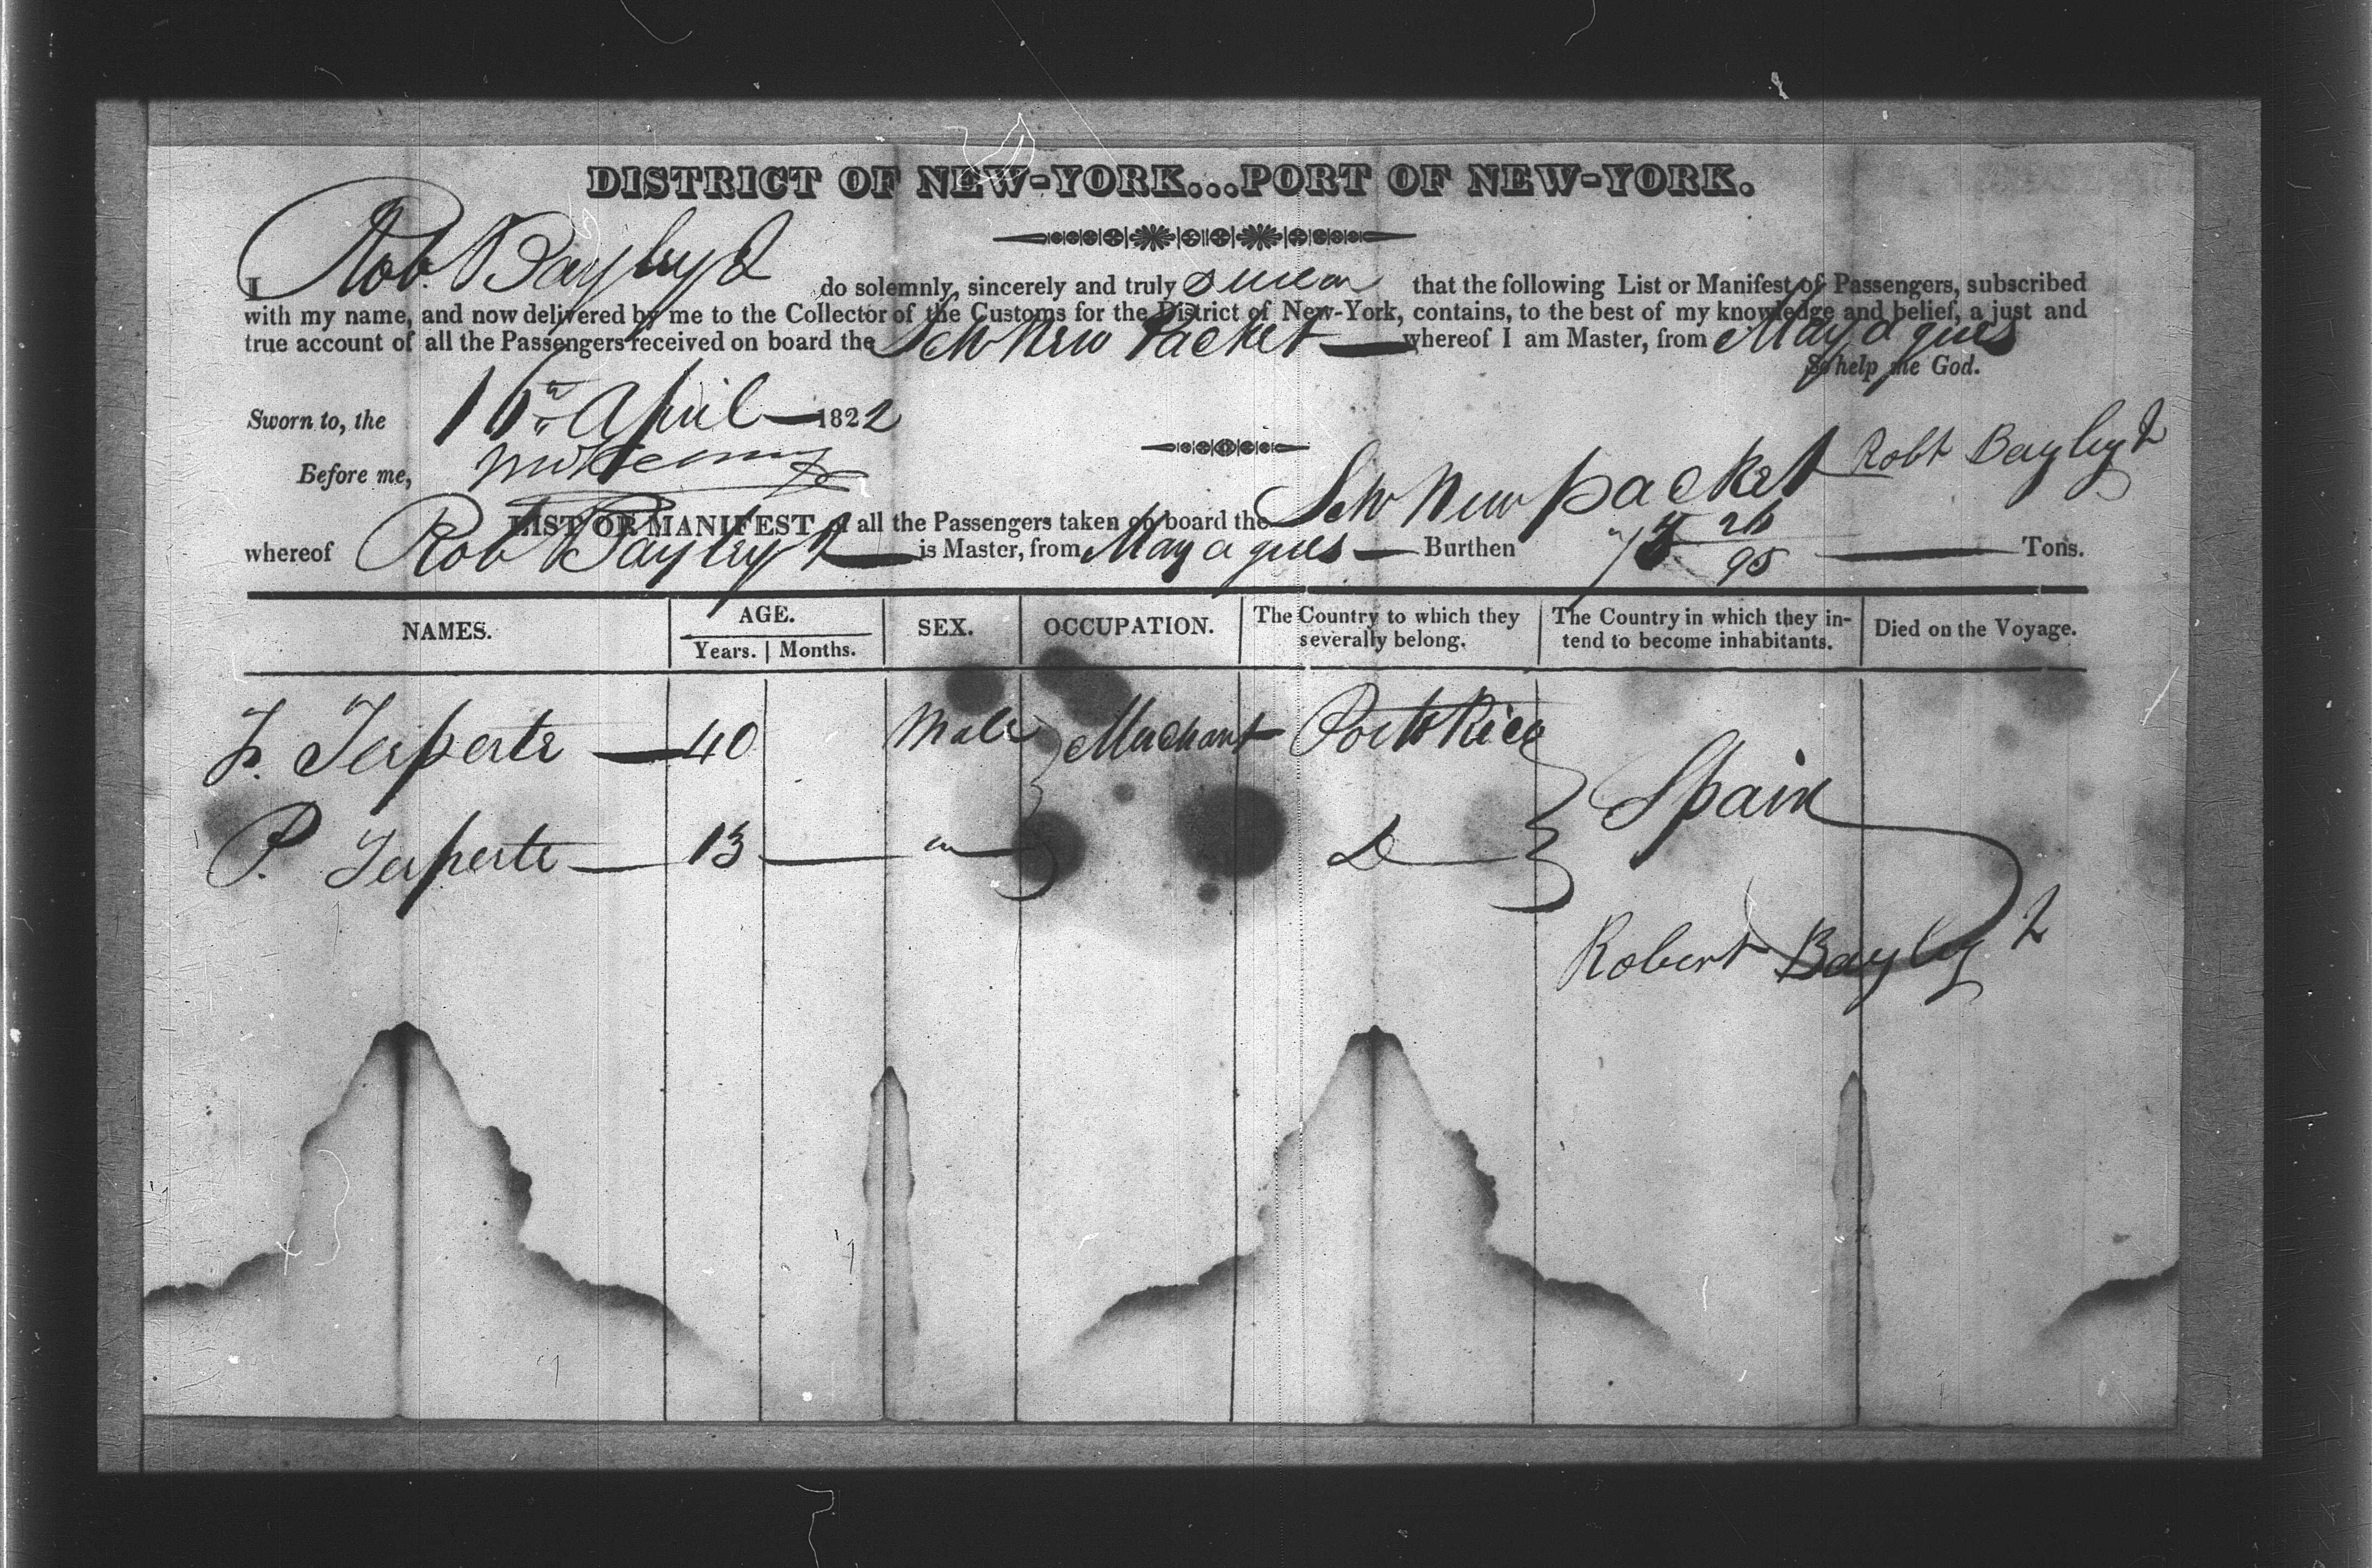 DISTRICT OF NEW-YORK...PORT OF NEW-YORK.
I Rob. Bayley 2 do solemnly, sincerely and truly swear that the following List or Manifest of Passengers, subscribed
with my name, and now delivered by me to the Collector of the Customs for the District of New-York, contains, to the best of my knowledge and belief, a just and
true account of all the Passengers received on board the Schr New Packet whereof I am Master, from Mayagues
So help me God.
Sworn to, the April 1822
Robt Bayley 2
Before me,
LIST OR MANIFEST of all the Passengers taken on board the Schr New packet
whereof Rob Bayley 2 is Master, from Mayagues Burthen 26/95 Tons.
NAMES. AGE. SEX. OCCUPATION. The Country to which they severally belong. The Country in which they intend to become inhabitants. Died on the Voyage.
Years. Months.
40 Male Merchant Porto Rico
Spain
P. 13 " D
Robert Bayley 2